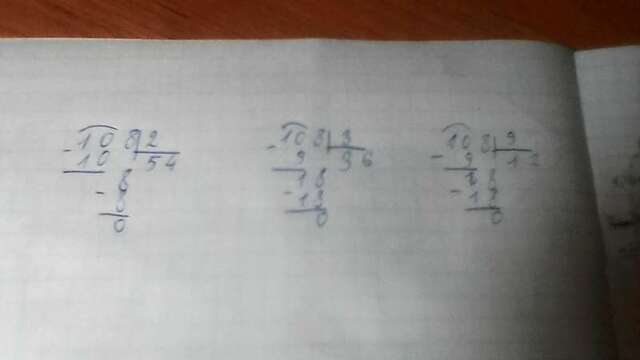 108 2 108 3 108 9
- 10 54 - 9 36 - 9 12
8 18 18
- 8 - 18 - 18
0 0 0